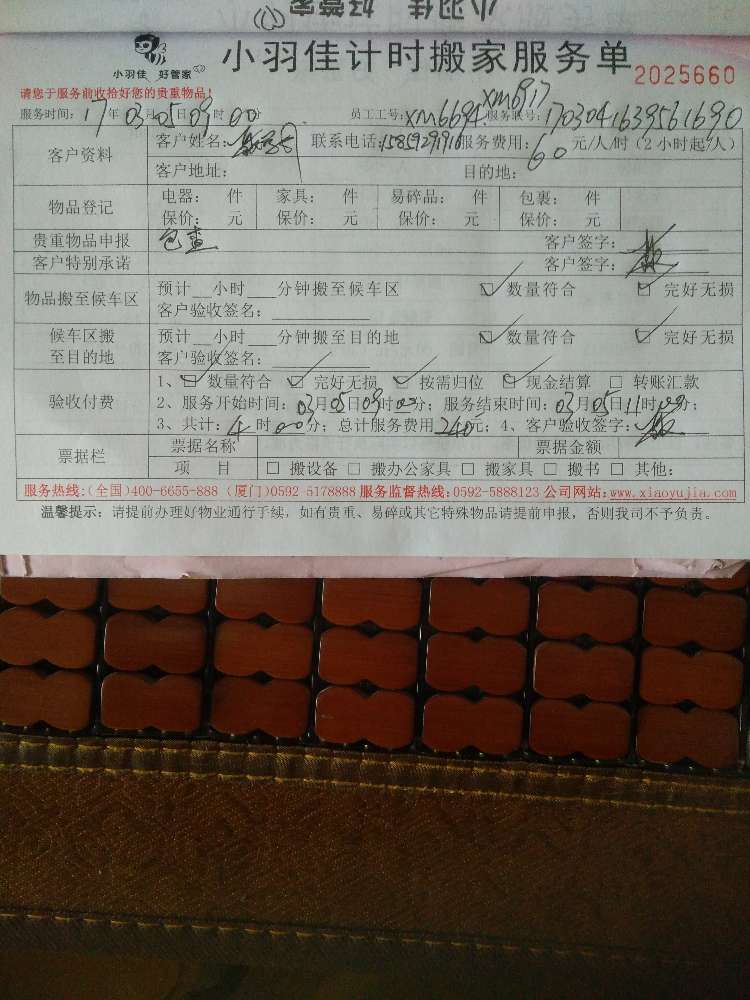 小羽佳 好管家
小羽佳 好管家
小羽佳计时搬家服务单 2025660
请您于服务前收拾好您的贵重物品！
服务时间：17年03月05日09时00分 员工工号：xm6694 xm6917 服务联号：1703041639561690
客户资料 客户姓名： 联系电话：15859291916 服务费用：60元/人/时（2小时起/人）
客户地址： 目的地：
物品登记 电器： 件 家具： 件 易碎品： 件 包裹： 件
保价： 元 保价： 元 保价： 元 保价： 元
贵重物品申报 客户签字：
客户特别承诺 客户签字：
物品搬至候车区 预计__小时___分钟搬至候车区 ☑ 数量符合 ☑ 完好无损
客户验收签名：
候车区搬至目的地 预计__小时___分钟搬至目的地 ☑ 数量符合 ☑ 完好无损
客户验收签名：
验收付费 1、☑ 数量符合 ☑ 完好无损 ☑ 按需归位 ☑ 现金结算 □ 转账汇款
2、服务开始时间：03月05日09时00分；服务结束时间：03月05日11时00分；
3、共计：4时00分；总计服务费用240元；4、客户验收签字：
票据栏 票据名称 票据金额
项 目 □ 搬设备 □ 搬办公家具 □ 搬家具 □ 搬书 □ 其他：
服务热线：（全国）400-6655-888（厦门）0592-5178888 服务监督热线：0592-5888123 公司网站：www.xiaoyujia.com
温馨提示：请提前办理好物业通行手续，如有贵重、易碎或其它特殊物品请提前申报，否则我司不予负责。